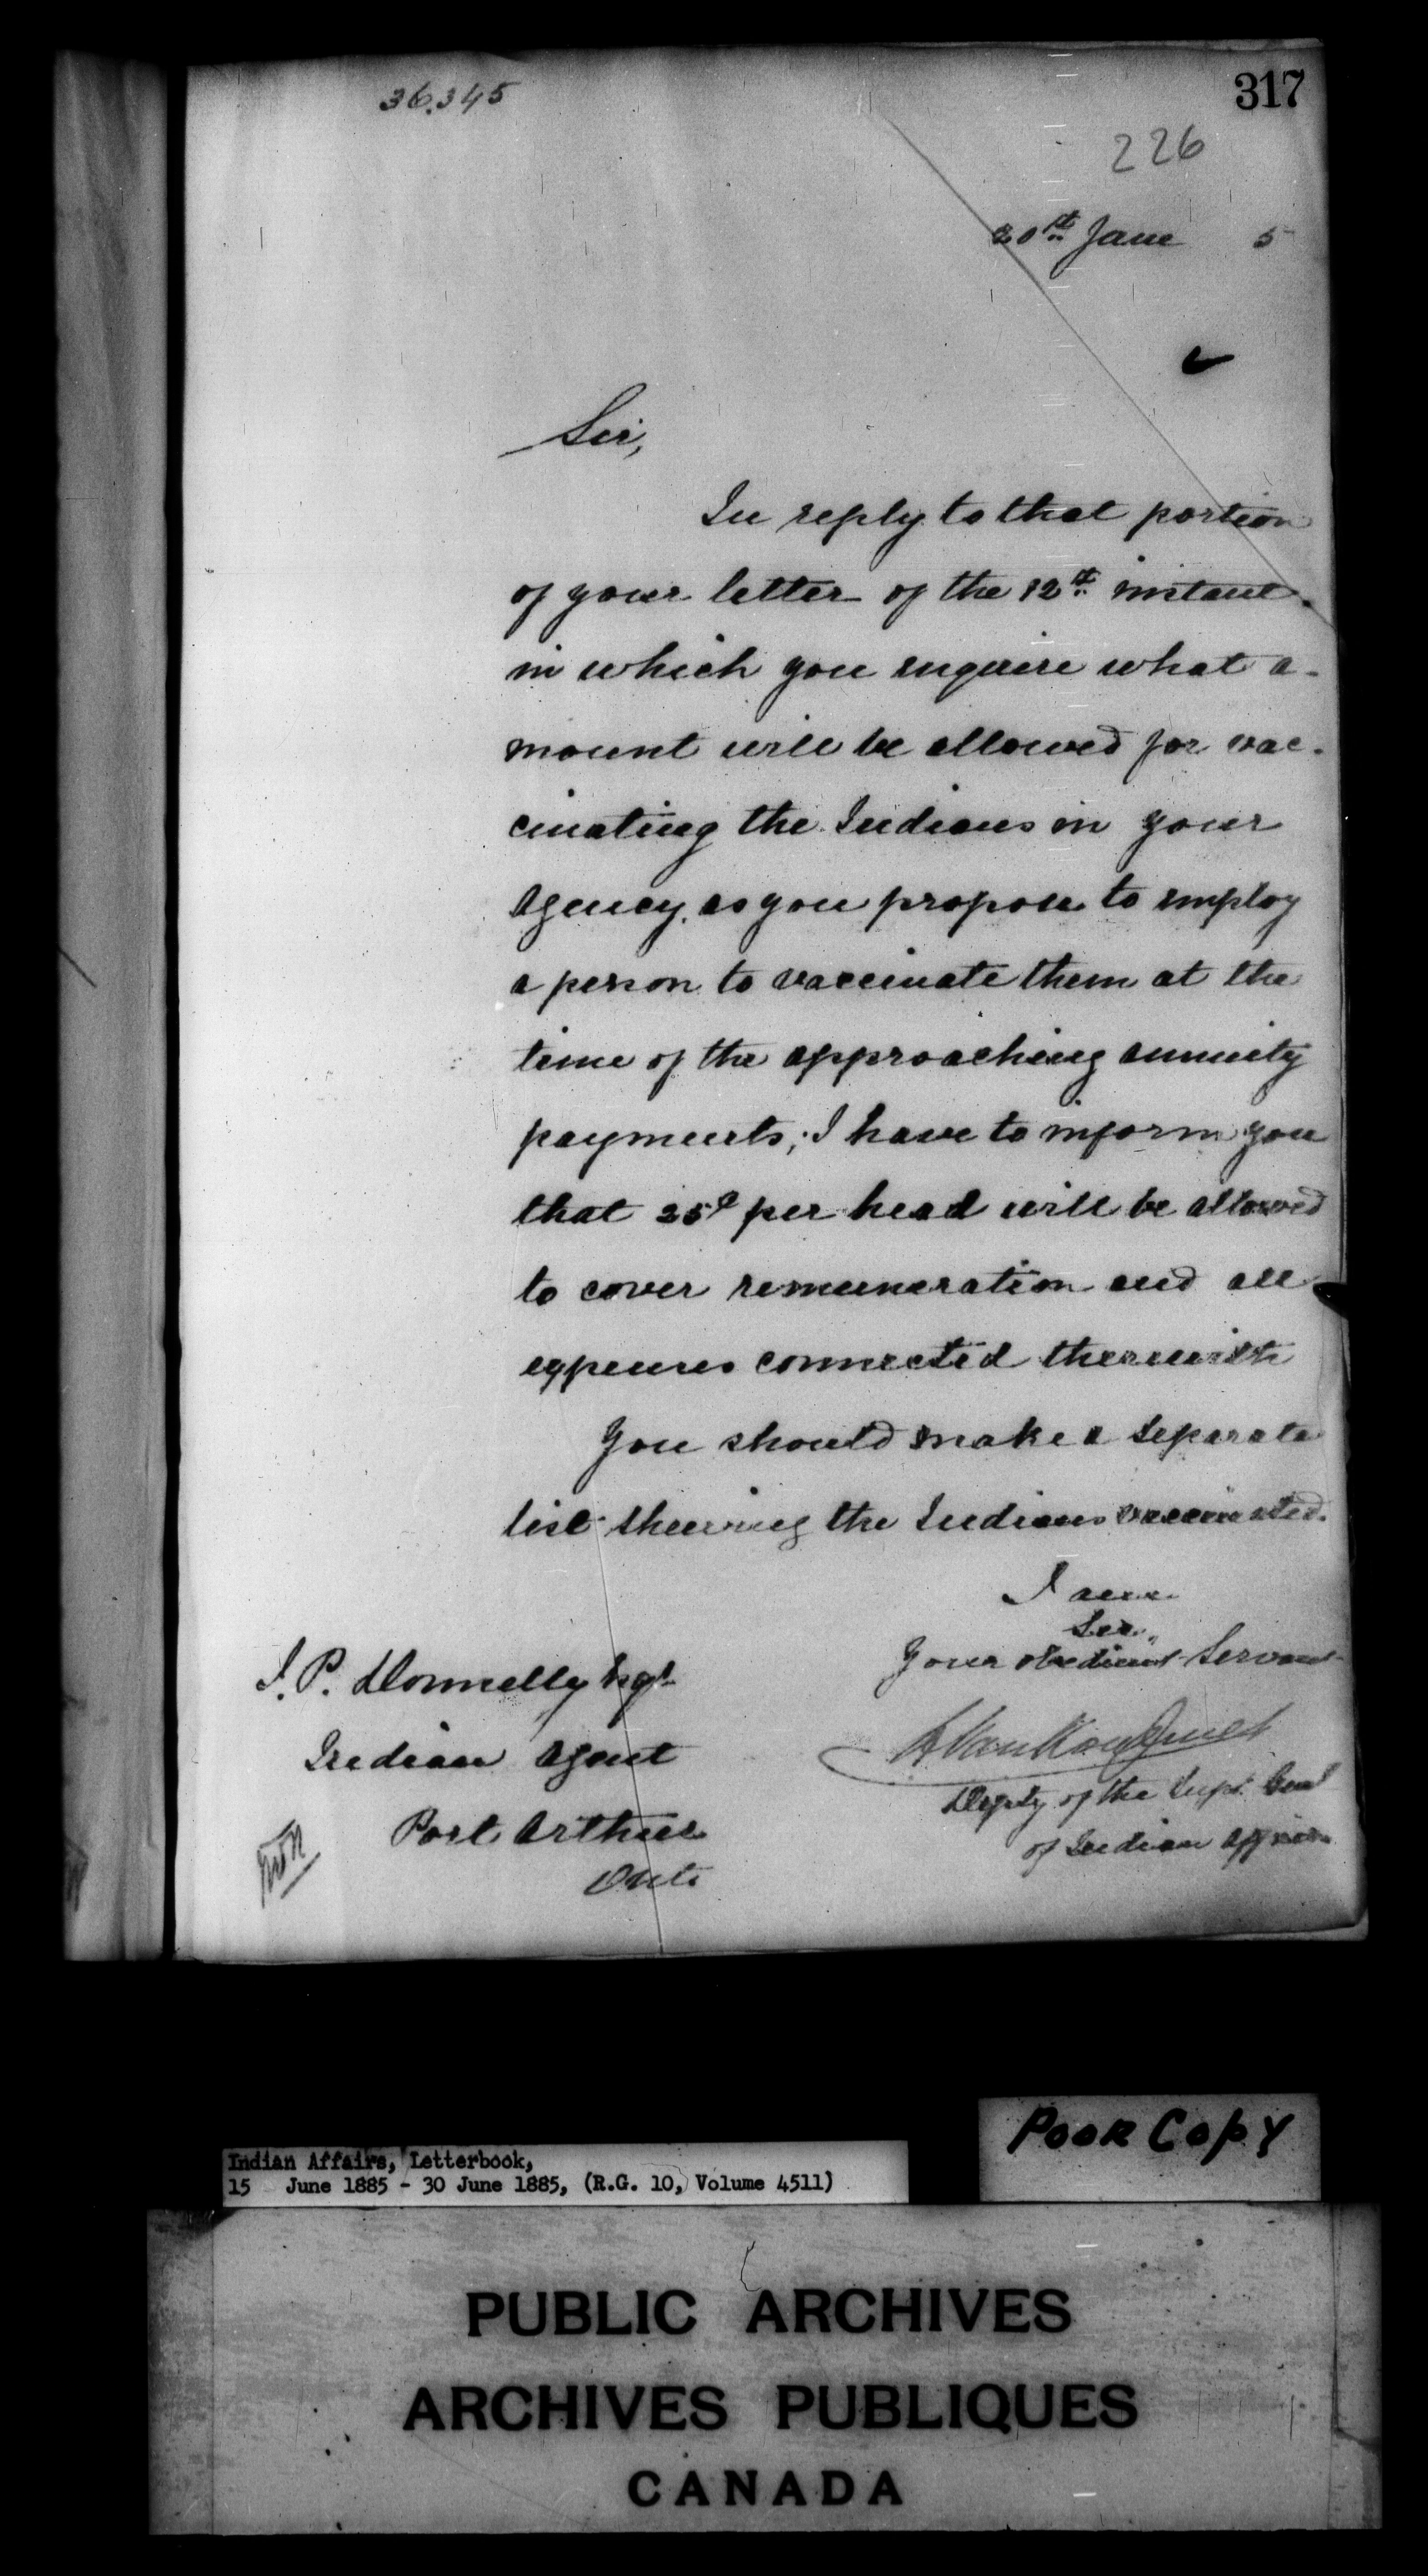 36.345
317
226
20th June 5
Sir,
In reply to that portion
of your letter of the 12th instant
in which you enquire what a-
mount will be allowed for vac-
cinating the Indians in your
Agency, as you propose to employ
a person to vaccinate them at the
time of the approaching annuity
payments; I have to inform you
that 25¢ per head will be allowed
to cover remuneration and all
expenses connected therewith
You should make a separate
list shewing the Indians vaccinated.
I am
Sir,
Your obedient Servant
L. VanKoughnet
Depty of the Supt. Genl
of Indian Affairs
J. P. Donnelly Esqr
Indian Agent
Port Arthur
Ont.
Indian Affairs, Letterbook,
15 June 1885 - 30 June 1885, (R.G. 10, Volume 4511)
Poor Copy
PUBLIC ARCHIVES
ARCHIVES PUBLIQUES
CANADA